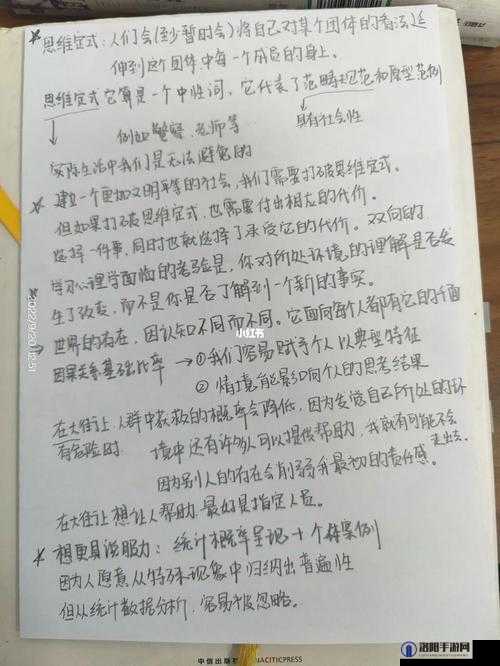 * 思维定式:人们会(至少暂时会)将自己对某个团体的看法延
伸到这个团体中每一个成员的身上。
思维定式它算是一个中性词,它代表了范畴规范和原型范例
具有社会性
例如警察、老师等
实际生活中我们是无法避免的
* 建立一个更加文明平等的社会,我们需要打破思维定式。
但如果打破思维定式,也需要付出相大的代价。
选择一件事,同时也就选择了承受它的代价。双向的
学习心理学面临的考验是,你对所处环境的理解是否发
生了改变,而不是你是否了解到一个新的事实。
世界的存在,因认知不同而不同。它面向每个人都有它的千面
因果关系基础比率 → ①我们容易赋予个人以典型特征
②情境能影响个人的思考结果
在大街上,人群中获救的概率会降低,因为发觉自己所处的环
有危险时 境中还有许多人可以提供帮助,我就有可能不会
走出去。
因为别人的存在会削弱我最初的责任感
在大街上想让人帮助,最好是指定人员。
* 想更具说服力:统计概率呈现+个体案例
因为人愿意从特殊现象中归纳出普遍性
但从统计数据分析,容易被忽略。
2022/9/20 12:51
小红书
中信出版
CITICPRESS
洛阳手游网